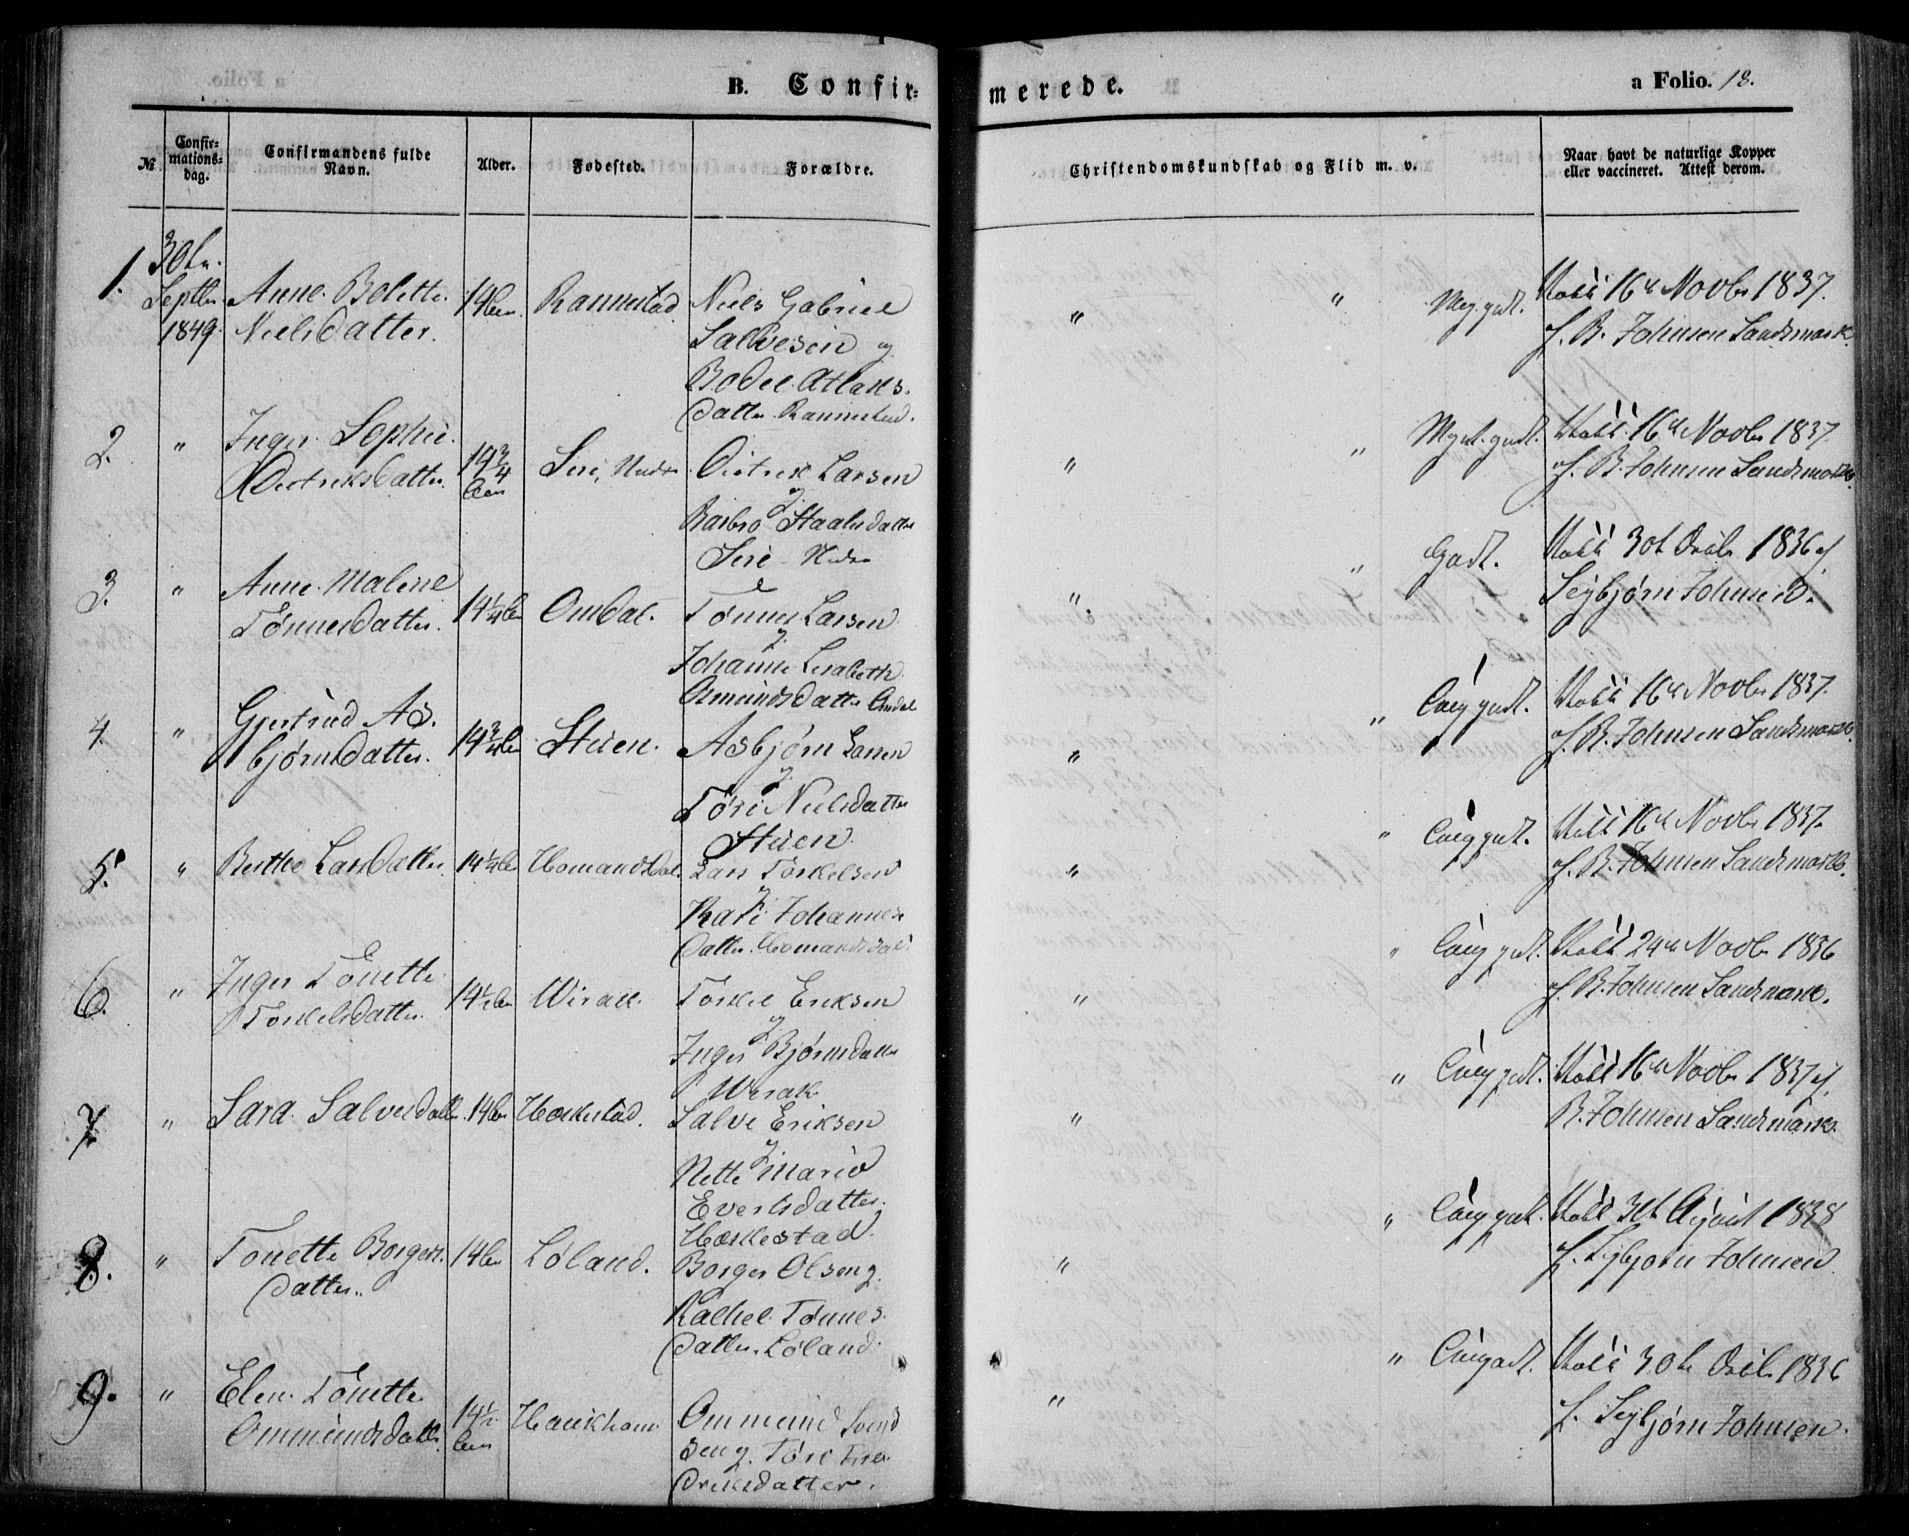 B. Confir-
merede.
a Folio. 18.
№
Confir-
mations-
dag.
Confirmandens fulde
Navn.
Alder.
Fødested.
Forældre.
Christendomskundskab og Flid m. v.
Naar havt de naturlige Kopper
eller vaccineret. Attest derom.
1.
30te
Septbr
1849.
Anne Bolette
Nielsdatter.
14
Rannestad
Niels Gabriel
Salvesen og
Bodil Atlaks
datter Rannestad.
"
"
Meg. godt.
16de Novbr 1837.
af B. Johnsen Sandsmark
2.
"
Inger Sophie
Dietriksdatter.
14 3/4
Sire, Nedre
Dietrik Larsen
og
Barbro Staalesdatter
Sire Nedre
"
"
Meget godt.
16de Novbr 1837.
af B. Johnsen Sandsmark
3.
"
Anne Malene
Tønnesdatter.
14 1/4
Omdal.
Tønnes Larsen
og
Johanne Lisabeth
Osmundsdatter Omdal
"
"
Godt.
30te Octbr 1836 af
Seybjørn Johnsen.
4.
"
Gjertrud As-
bjørnsdatter.
14 3/4
Stuen.
Asbjørn Larsen
og
Tøri Nielsdatter
Stuen.
"
"
godt.
16de Novbr 1837.
af B. Johnsen Sandsmark
5.
"
Berthe Larsdatter
14 1/4
Homandsdal.
Lars Torkelsen
og
Kari Johannes
datter Homandsdal.
"
"
godt.
16de Novbr 1837.
af B. Johnsen Sandsmark.
6.
"
Inger Tonette
Torkelsdatter.
14 1/2
Wirak.
Torkel Eriksen
og
Inger Bjørnsdatter
Wirak
"
"
godt.
24de Novbr 1836
af B. Johnsen Sandsmark.
7.
"
Sara Salvesdatter
14
Hækkestad.
Salve Eriksen
og
Nette Marie
Evertsdatter
Hækkestad.
"
"
godt.
16de Novbr 1837 af
B. Johnsen Sandsmark.
8.
"
Tonette Borges
datter.
14
Løland.
Borger Olsen og
Rachel Tønnes
datter Løland.
"
"
godt.
31te August 1838
af Seybjørn Johnsen
9.
"
Elen Tonette
Ommundsdatter
14 1/2
Haukham
Ommund Svend
sen og Tøre
driksdatter.
"
"
godt.
30te Octbr 1836
af Seybjørn Johnsen.